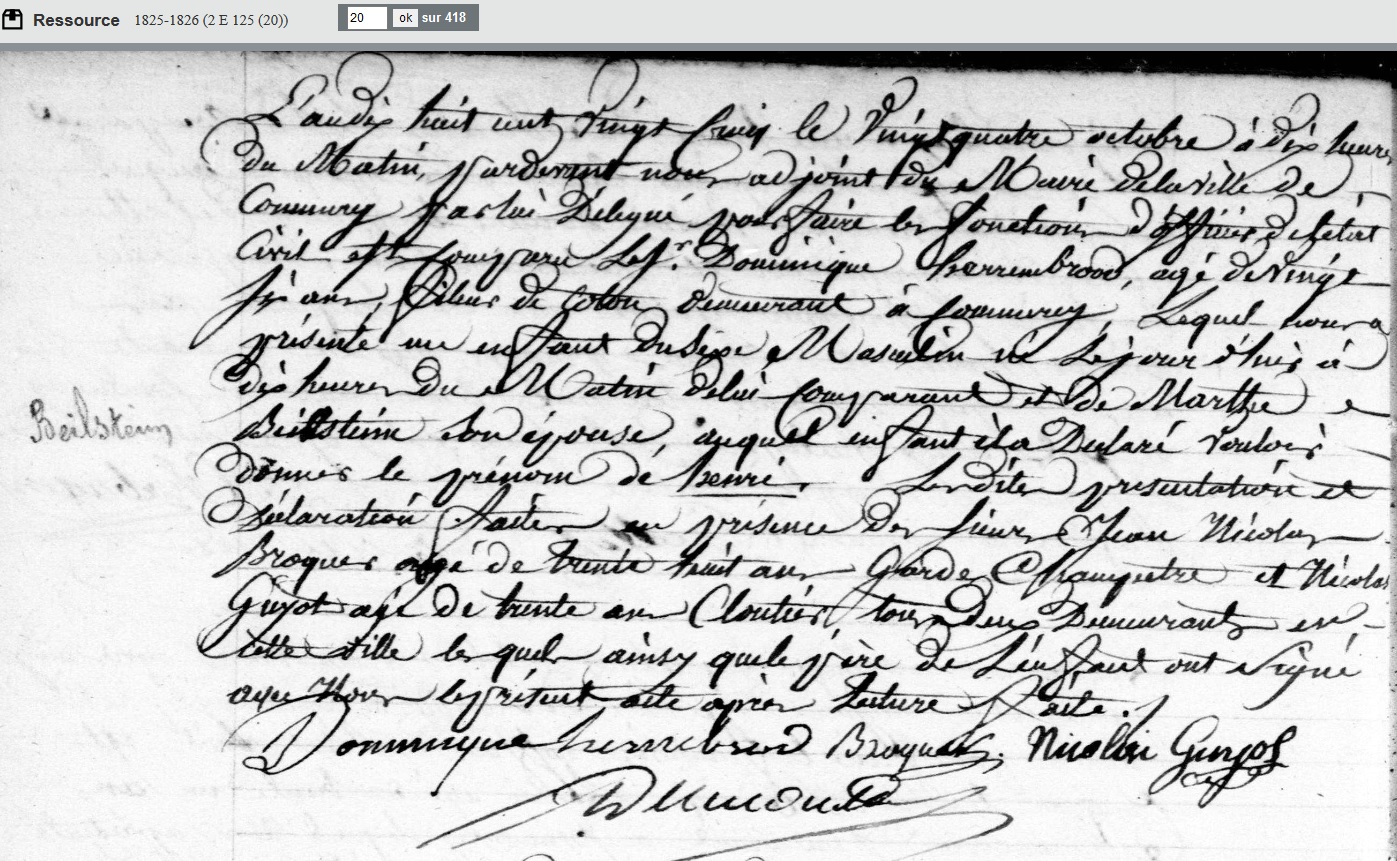 Ressource 1825-1826 (2 E 125 (20)) 20 ok sur 418
L'an dix huit cent vingt Cinq le Vingt quatre octobre à dix heures
du Matin, pardevant nous adjoint du Maire de la ville de
Commercy par lui Délégué pour faire les fonctions d'officier de l'état
Civil est Comparu Le Sr. Dominique herrembrood, agé de Vingt
six ans, fileur de Coton demeurant à Commercy Lequel nous a
présenté un enfant du Sexe Masculin né Le jour d'hui à
dix heures du Matin de lui Comparant et de Marthe
Beilstein Son épouse, auquel enfant il a Déclaré vouloir
donner le prénom de henri. Lesdites presentation et
Déclaration faites en présence des Sieurs Jean Nicolas
Broquer agé de trente huit ans Garde Champetre et Nicolas
Guyot agé de trente ans Cloutier, tous deux Demeurants en
cette ville lesquels ainsy que le père de L'enfant ont Signé
avec Nous le présent acte après Lecture faite.
Beilstein
Dominique herrebrood Broquer Nicolas Guyot